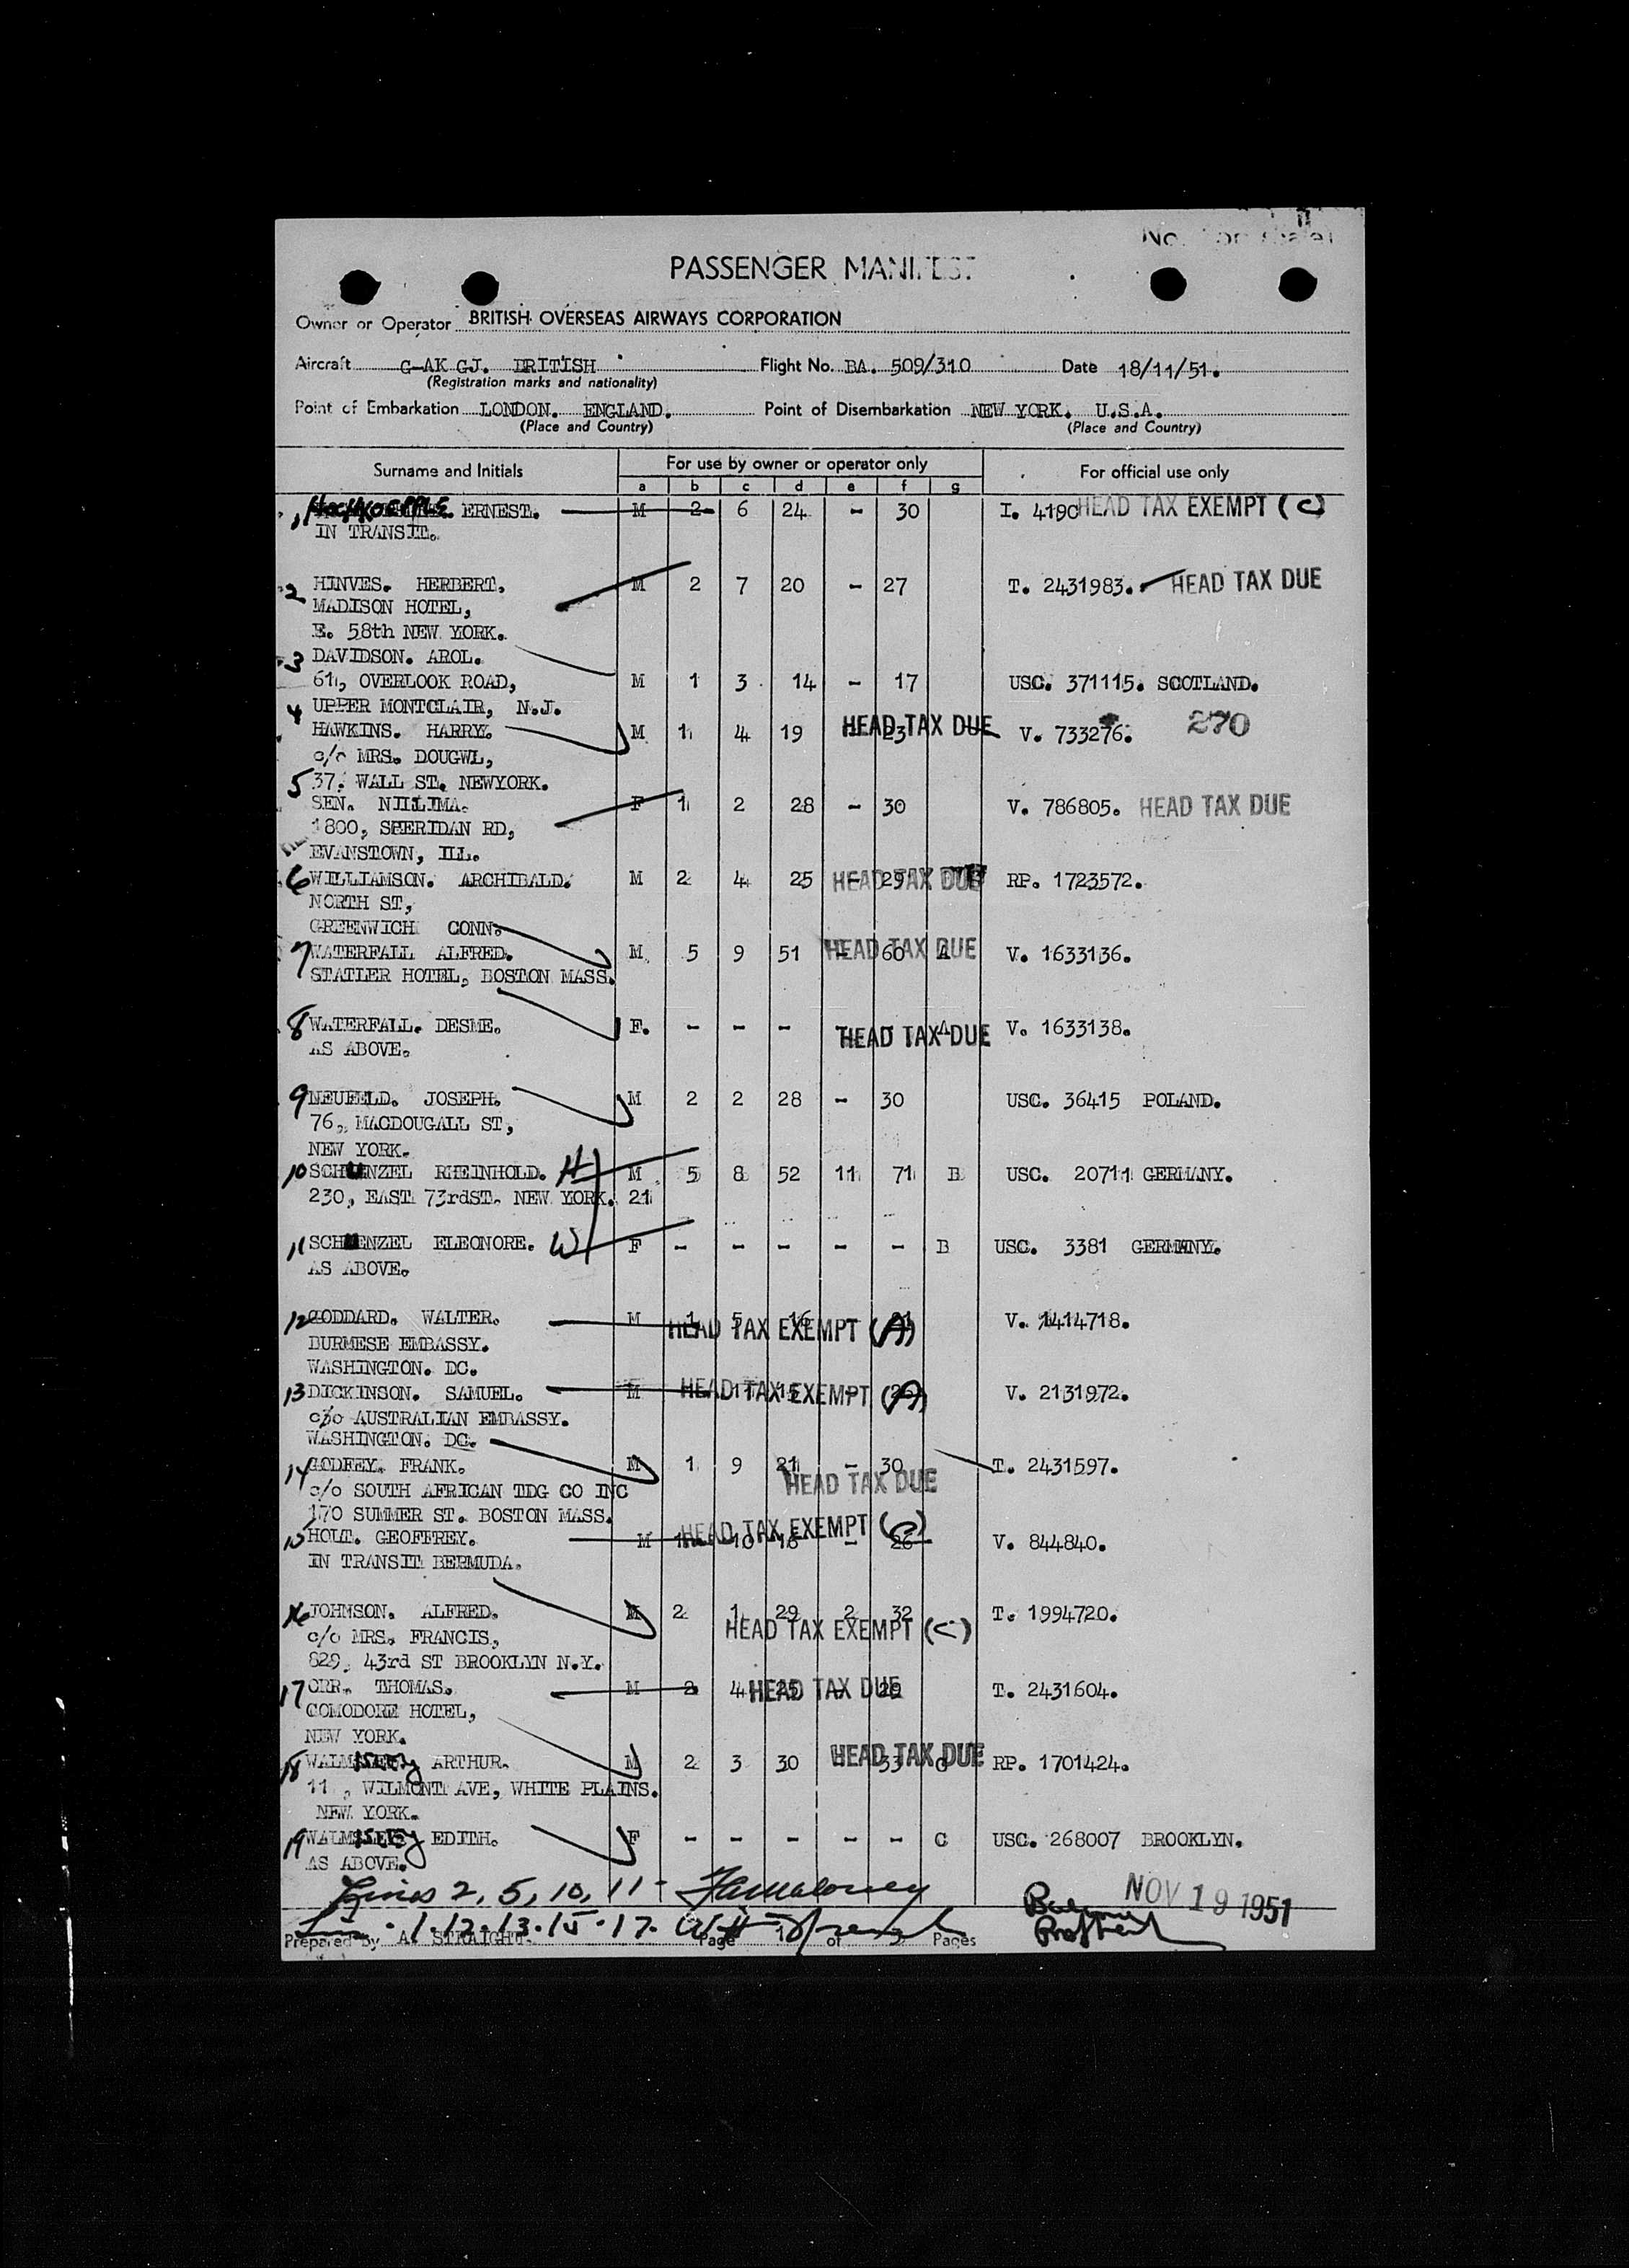 PASSENGER MANIFEST
Owner or Operator BRITISH OVERSEAS AIRWAYS CORPORATION
Aircraft G-AK GJ. BRITISH Flight No. BA. 509/310 Date 18/11/51.
(Registration marks and nationality)
Point of Embarkation LONDON. ENGLAND. Point of Disembarkation NEW YORK. U.S.A.
(Place and Country) (Place and Country)
Surname and Initials For use by owner or operator only For official use only
a b c d e f g
1 HOCHKOEPPLE ERNEST. M 2 6 24 - 30 I. 4190 HEAD TAX EXEMPT (C)
IN TRANSIT.
2 HINVES. HERBERT. M 2 7 20 - 27 T. 2431983. HEAD TAX DUE
MADISON HOTEL,
E. 58th NEW YORK.
3 DAVIDSON. AROL.
611, OVERLOOK ROAD, M 1 3 14 - 17 USC. 371115. SCOTLAND.
UPPER MONTCLAIR, N.J.
4 HAWKINS. HARRY. M 1 4 19 - 23 HEAD TAX DUE V. 733276. 270
c/o MRS. DOUGWL,
37. WALL ST. NEWYORK.
5 SEN. NILIMA. F 1 2 28 - 30 V. 786805. HEAD TAX DUE
1800, SHERIDAN RD,
EVANSTOWN, ILL.
6 WILLIAMSON. ARCHIBALD. M 2 4 25 - 29 HEAD TAX DUE RP. 1723572.
NORTH ST,
GREENWICH CONN.
7 WATERFALL ALFRED. M 5 9 51 - 60 A HEAD TAX DUE V. 1633136.
STATLER HOTEL, BOSTON MASS.
8 WATERFALL. DESME. F. - - - - - A HEAD TAX DUE V. 1633138.
AS ABOVE.
9 NEUFELD. JOSEPH. M 2 2 28 - 30 USC. 36415 POLAND.
76, MACDOUGALL ST,
NEW YORK.
10 SCHUENZEL RHEINHOLD. H M 5 8 52 11 71 B USC. 20711 GERMANY.
230, EAST 73rdST. NEW YORK. 21
11 SCHUENZEL ELEONORE. W F - - - - - B USC. 3381 GERMANY.
AS ABOVE.
12 GODDARD. WALTER. M 1 5 16 - 21 HEAD TAX EXEMPT (A) V. 1414718.
BURMESE EMBASSY.
WASHINGTON. DC.
13 DICKINSON. SAMUEL. M 11 15 - 26 HEAD TAX EXEMPT (A) V. 2131972.
c/o AUSTRALIAN EMBASSY.
WASHINGTON. DC.
14 GODFEY. FRANK. M 1 9 21 - 30 HEAD TAX DUE T. 2431597.
c/o SOUTH AFRICAN TDG CO INC
170 SUMMER ST. BOSTON MASS.
15 HOLT. GEOFFREY. M 1 10 16 - 26 HEAD TAX EXEMPT (C) V. 844840.
IN TRANSIT BERMUDA.
16 JOHNSON. ALFRED. M 2 1 29 2 32 HEAD TAX EXEMPT (C) T. 1994720.
c/o MRS. FRANCIS,
829, 43rd ST BROOKLYN N.Y.
17 ORR. THOMAS. M 2 4 25 - 29 HEAD TAX DUE T. 2431604.
COMODORE HOTEL,
NEW YORK.
18 WALMSLEY ARTHUR. M 2 3 30 - 33 C HEAD TAX DUE RP. 1701424.
11, WILMONT AVE, WHITE PLAINS.
NEW YORK.
19 WALMSLEY EDITH. F - - - - - C USC. 268007 BROOKLYN.
AS ABOVE.
Lines 2, 5, 10, 11 - NOV 19 1951
1.12.13.15.17.
Prepared By A. STRAIGHT. Page of Pages